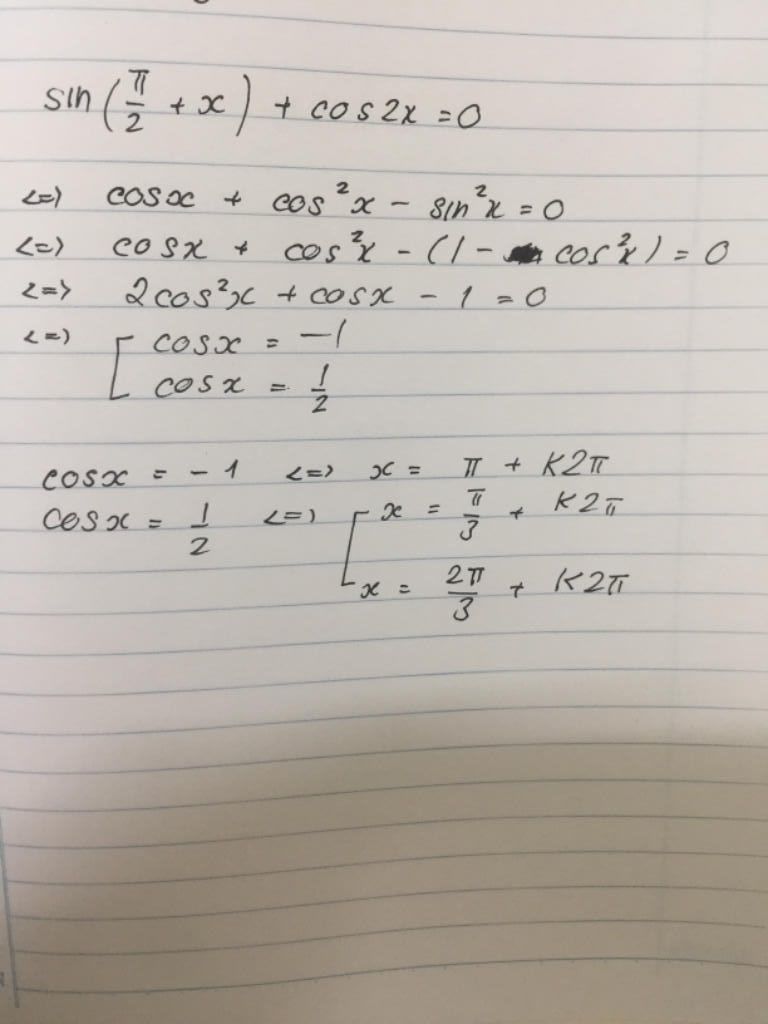 sin(π/2 + x) + cos2x = 0
<=> cosx + cos²x - sin²x = 0
<=> cosx + cos²x - (1 - cos²x) = 0
<=> 2cos²x + cosx - 1 = 0
<=> [ cosx = -1
cosx = 1/2
cosx = -1 <=> x = π + K2π
cosx = 1/2 <=> [ x = π/3 + K2π
x = 2π/3 + K2π